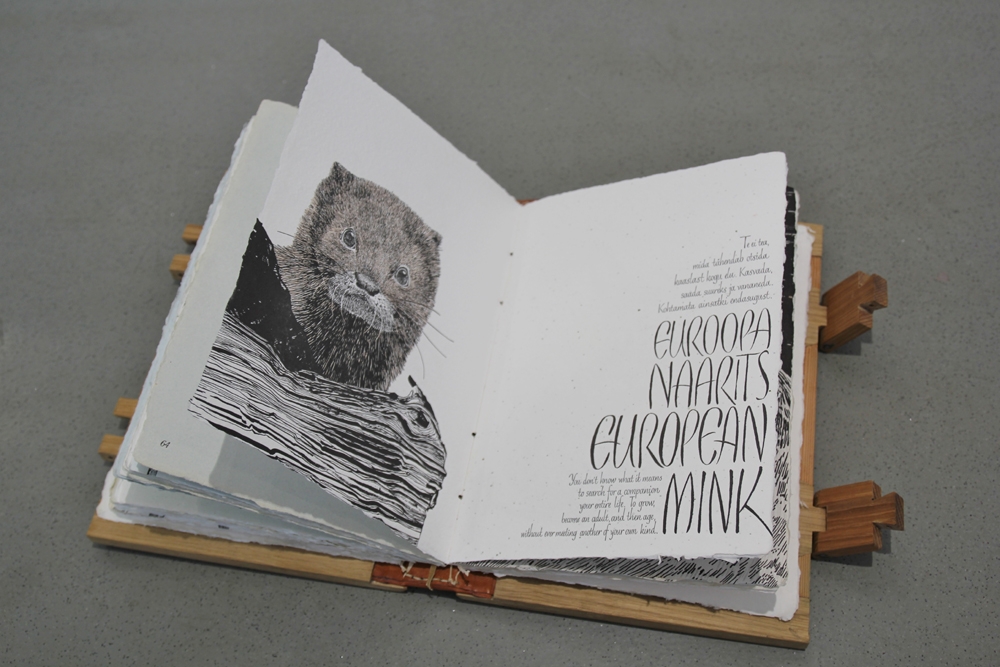 64
Te ei tea,
mida tähendab otsida
kaaslast kogu elu. Kasvada,
saada suureks ja vananeda,
Kohtamata ainsatki endasugust.
EUROOPA
NAARITS
EUROPEAN
MINK
You don't know what it means
to search for a companion
your entire life. To grow,
become an adult, and then age,
without ever meeting another of your own kind.